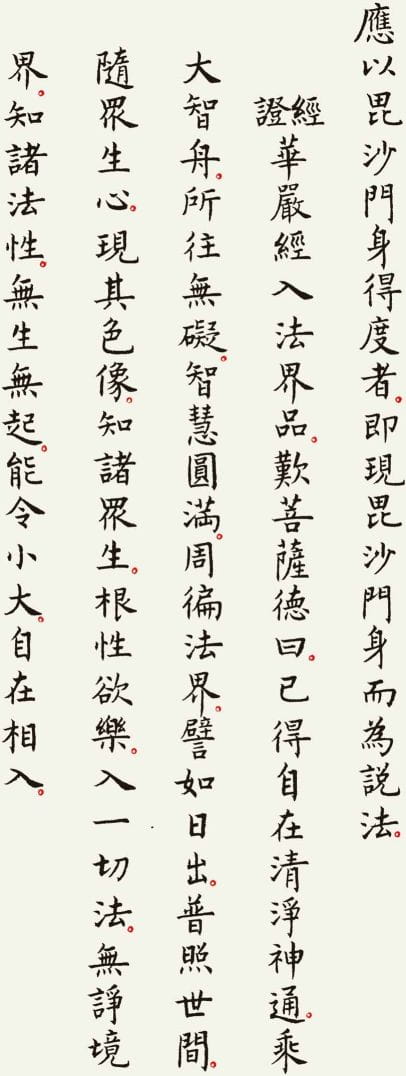 應以毘沙門身得度者。即現毘沙門身而為說法。
經證 華嚴經入法界品。歎菩薩德曰。已得自在清淨神通。乘
大智舟。所往無礙。智慧圓滿。周徧法界。譬如日出。普照世間。
隨眾生心。現其色像。知諸眾生。根性欲樂。入一切法。無諍境
界。知諸法性。無生無起。能令小大。自在相入。